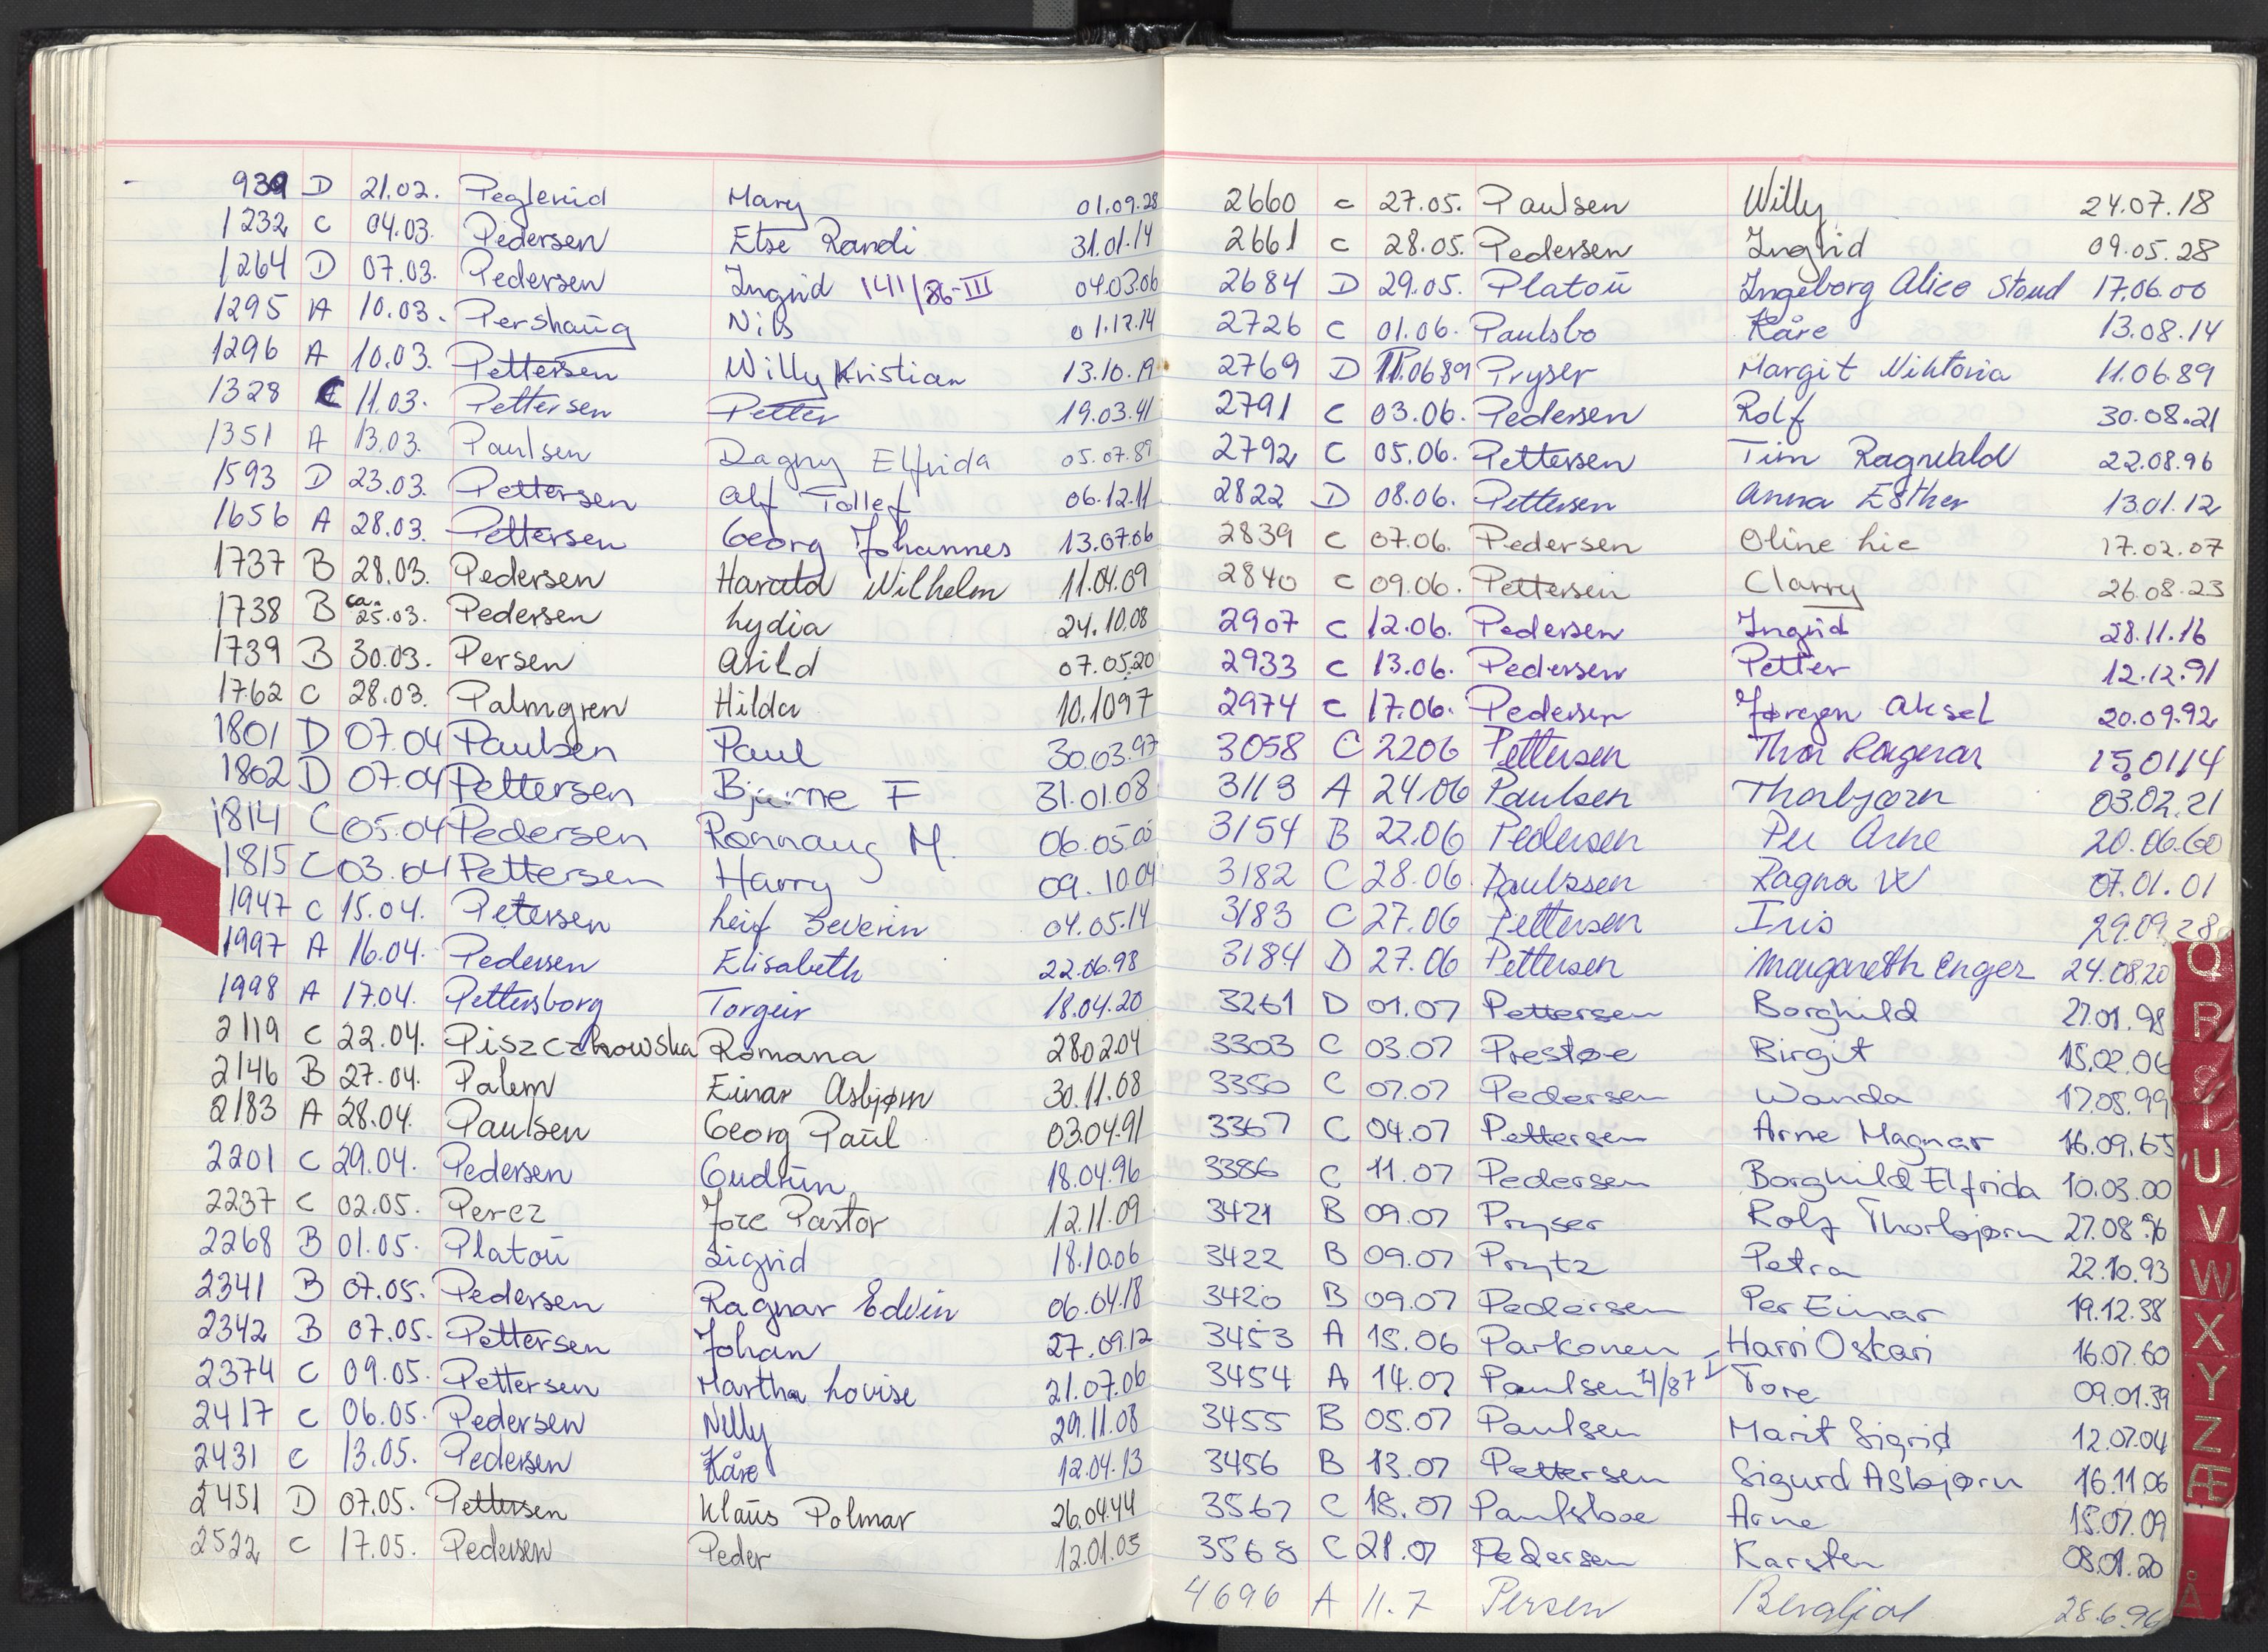 939 D 21.02. Peglerud Mary 01.09.28
1232 C 04.03. Pedersen Else Randi 31.01.14
1264 D 07.03. Pedersen Ingrid 1411/86-III 04.03.06
1295 A 10.03. Pershaug Nils 01.12.14
1296 A 10.03. Pettersen Willy Kristian 13.10.19
1328 C 11.03. Pettersen Petter 19.03.41
1351 A 13.03. Paulsen Dagny Elfrida 05.07.89
1593 D 23.03. Pettersen Alf Tollef 06.12.11
1656 A 28.03. Pettersen Georg Johannes 13.07.06
1737 B 28.03. Pedersen Harald Wilhelm 11.04.09
1738 B ca. 25.03. Pedersen Lydia 24.10.08
1739 B 30.03. Persen Arild 07.05.20
1762 C 28.03. Palmgren Hilda 10.1097
1801 D 07.04 Paulsen Paul 30.03.97
1802 D 07.04 Pettersen Bjarne F 31.01.08
1814 C 05.04 Pedersen Rønnaug M. 06.05.05
1815 C 03.04 Pettersen Harry 09.10.04
1947 C 15.04. Petersen Leif Severin 04.05.14
1997 A 16.04. Pedersen Elisabeth 22.06.98
1998 A 17.04. Pettersborg Torgeir 18.04.20
2119 C 22.04. Piszczkowska Romana 280204
2146 B 27.04. Palem Einar Asbjørn 30.11.08
2183 A 28.04. Paulsen Georg Paul 03.04.91
2201 C 29.04. Pedersen Gudrun 18.04.96
2237 C 02.05. Perez Jore Pastor 12.11.09
2268 B 01.05. Platou Sigrid 18.10.06
2341 B 07.05. Pedersen Ragnar Edvin 06.04.18
2342 B 07.05. Pettersen Johan 27.09.12
2374 C 09.05. Pettersen Martha Lovise 21.07.06
2417 C 06.05. Pedersen Nelly 29.11.08
2431 C 13.05. Pedersen Kåre 12.04.13
2451 D 07.05. Pettersen Klaus Polmar 26.04.44
2522 C 17.05. Pedersen Peder 12.01.05
2660 C 27.05. Paulsen Willy 24.07.18
2661 C 28.05. Pedersen Ingrid 09.05.28
2684 D 29.05. Platou Ingeborg Alice Stoud 17.06.00
2726 C 01.06. Paulsbo Kåre 13.08.14
2769 D 11.0689 Pryser Margit Viktoria 11.06.89
2791 C 03.06. Pedersen Rolf 30.08.21
2792 C 05.06. Pettersen Tim Ragnvald 22.08.96
2822 D 08.06. Pettersen Anna Esther 13.01.12
2839 C 07.06. Pedersen Oline Lie 17.02.07
2840 C 09.06. Pettersen Clarry 26.08.23
2907 C 12.06. Pedersen Ingrid 28.11.16
2933 C 13.06. Pedersen Petter 12.12.91
2974 C 17.06. Pedersen Jørgen Aksel 20.09.92
3058 C 2206 Pettersen Thor Ragnar 15.0114
3113 A 24.06 Paulsen Thorbjørn 03.02.21
3154 B 22.06 Pedersen Per Arne 20.06.60
3182 C 28.06. Paulssen Ragna W 07.01.01
3183 C 27.06 Pettersen Iris 29.09.28
3184 D 27.06 Pettersen Margareth Enger 24.08.20
3261 D 01.07 Pettersen Borghild 27.01.98
3303 C 03.07 Prestøe Birgit 15.02.06
3350 C 07.07 Pedersen Wanda 17.05.99
3367 C 04.07 Pettersen Arne Magnar 16.09.65
3386 C 11.07 Pedersen Borghild Elfrida 10.03.00
3421 B 09.07 Pryser Rolf Thorbjørn 27.08.96
3422 B 09.07 Prytz Petra 22.10.93
3420 B 09.07 Pedersen Per Einar 19.12.38
3453 A 15.06 Parkonen Harri Oskari 16.07.60
3454 A 14.07 Paulsen 4/87 I Tore 09.01.39
3455 B 05.07 Paulsen Marit Sigrid 12.07.04
3456 B 13.07 Pettersen Sigurd Asbjørn 16.11.06
3567 C 18.07 Paulsboe Arne 15.07.09
3568 C 21.07 Pedersen Karsten 08.01.20
4696 A 11.7 Persen 28.6.96
Q
R
S
T
U
V
W
X
Y
Z
Æ
Å